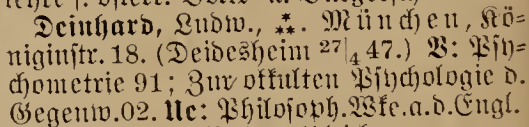 Deinhard, Ludw., ⁂. München, Kö-
niginstr. 18. (Deidesheim 27|4 47.) B: Psy-
chometrie 91; Zur okkulten Psychologie d.
Gegenw. 02. Ue: Philosoph. Wke. a. d. Engl.